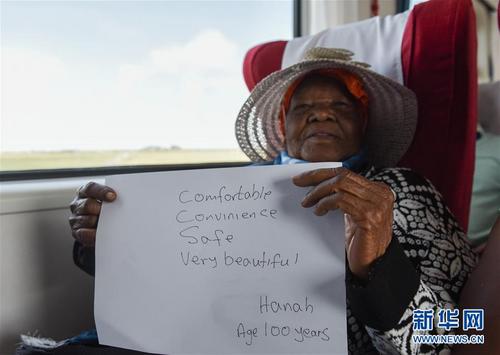 Comfortable
Convinience
Safe
Very beautiful
Hanah
Age 100 years
新华网
WWW.NEWS.CN